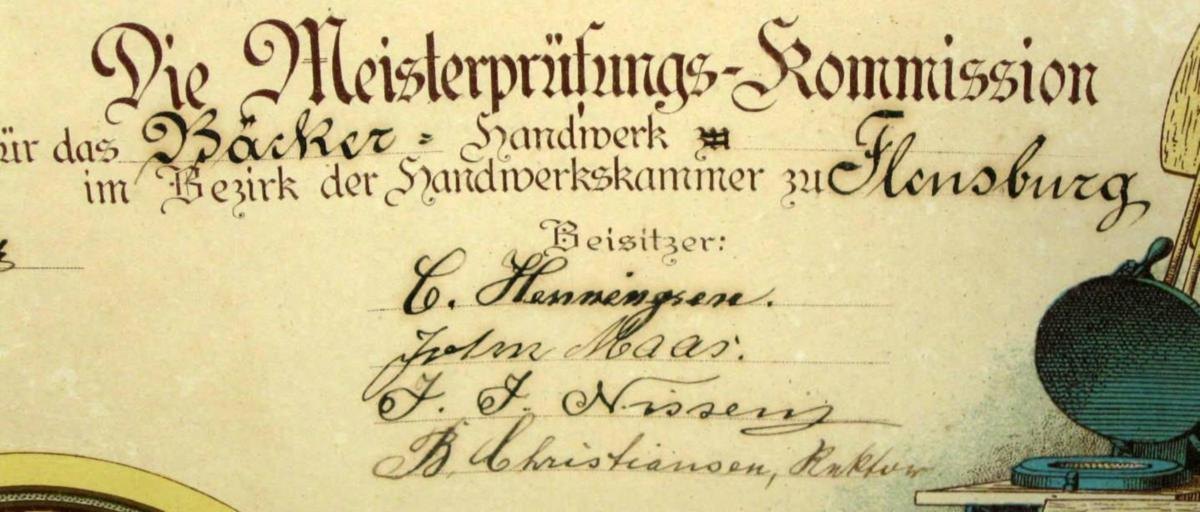 Die Meisterprüfungs-Kommission
für das Bäcker - Handwerk zu
im Bezirk der Handwerkskammer zu Flensburg
Beisitzer:
C. Henningsen.
John Maas.
J. J. Nissen
B Christiansen, Rektor